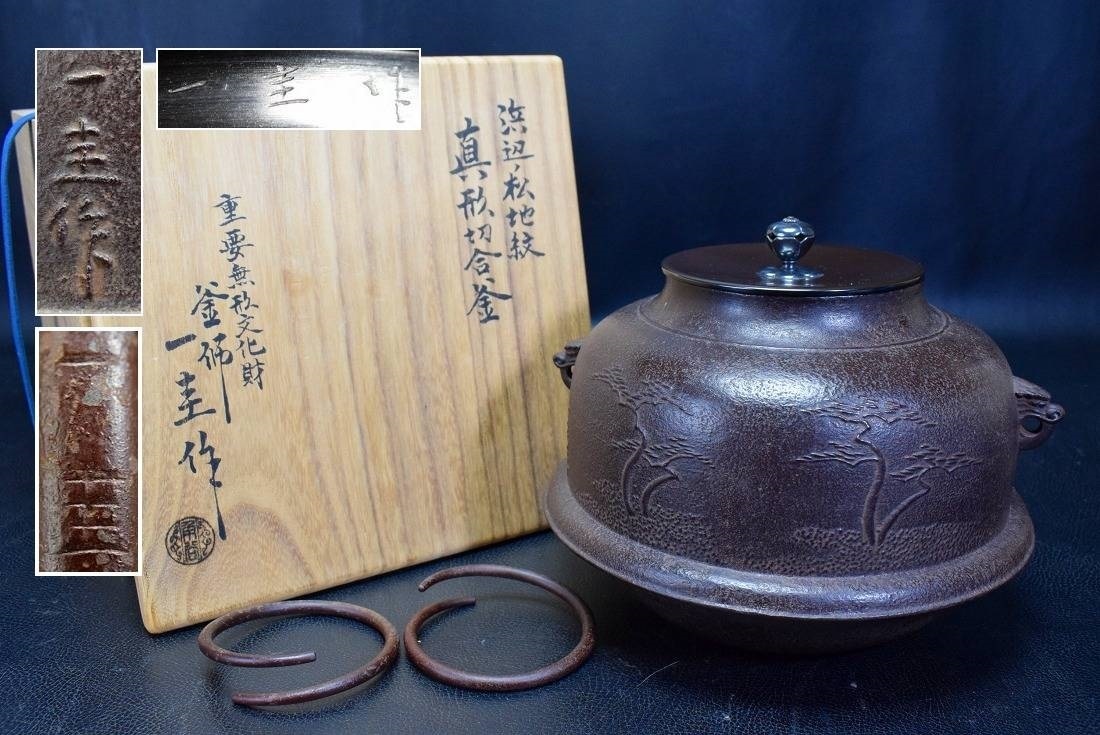 浜辺ノ松地紋
真形切合釜
重要無形文化財
釜師
一圭作
一圭作
一圭作
一圭